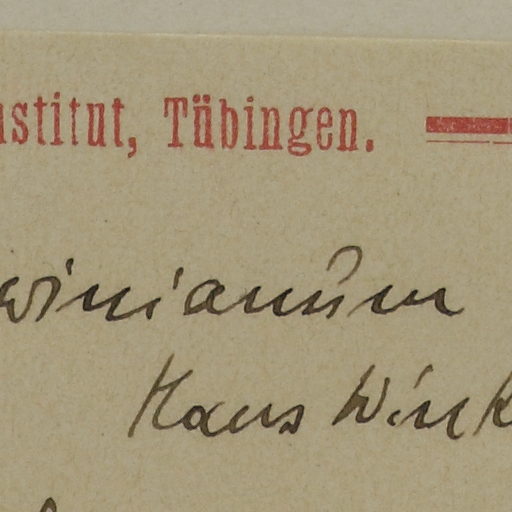 nstitut, Tübingen.
winianum
Hans Wink